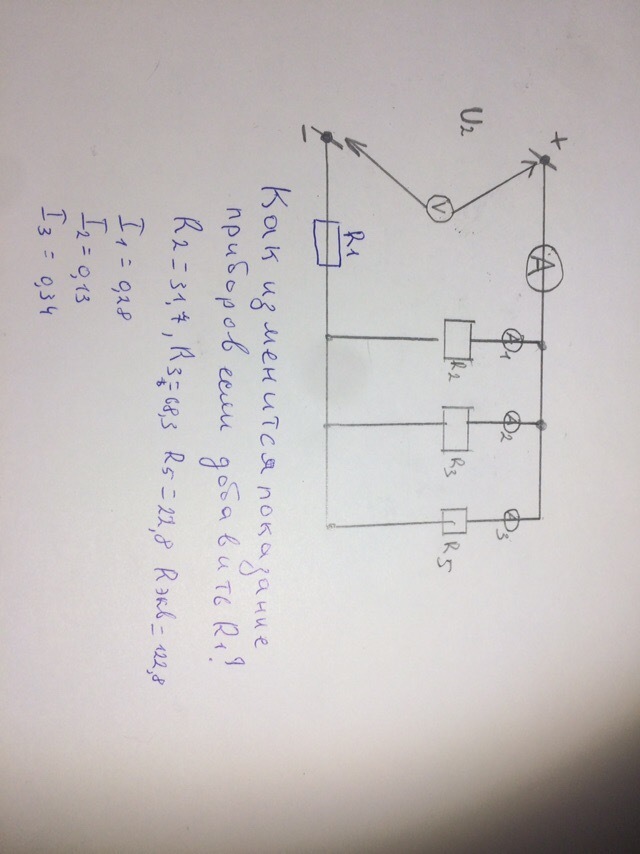 U2
+
-
V
A
R1
A1
A2
A3
R2
R3
R5
Как изменится показание
приборов если добавить R1?
R2=31,7, R3=68,3 R5=22,8 Rэкв=122,8
I1=0,28
I2=0,13
I3=0,34